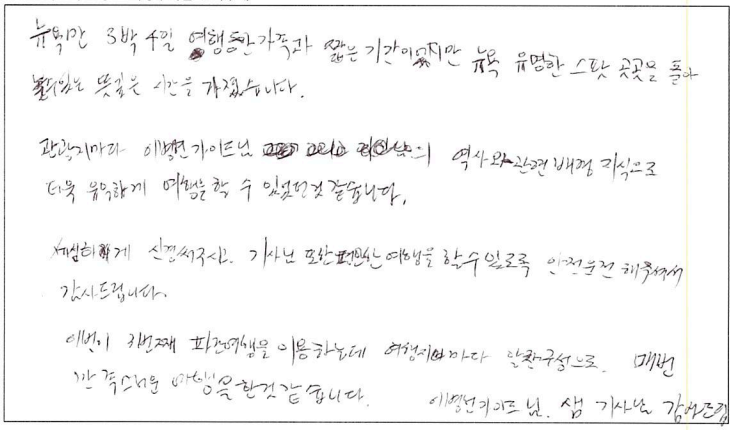 뉴욕만 3박 4일 여행동안 가족과 짧은 기간이었지만 뉴욕 유명한 스팟 곳곳을 돌아
볼수있는 뜻깊은 시간을 가졌습니다.
관광지마다 가이드님 의 역사와 관련 배경 지식으로
더욱 유익하게 여행을 할 수 있었던것 같습니다.
세심하게 신경써주시고 기사님 또한 편안한 여행을 할수 있도록 안전운전 해주셔서
감사드립니다.
이번이 3번째 여행을 이용하는데 여행지마다 알찬구성으로 매번
만족스러운 여행을 한것 같습니다. 가이드 님, 샘 기사님 감사드림